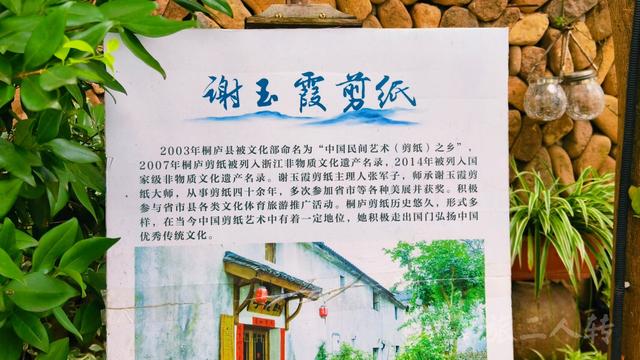 谢玉霞剪纸
2003年桐庐县被文化部命名为“中国民间艺术（剪纸）之乡”，
2007年桐庐剪纸被列入浙江非物质文化遗产名录，2014年被列入国
家级非物质文化遗产名录。谢玉霞剪纸主理人张军子，师承谢玉霞剪
纸大师，从事剪纸四十余年，多次参加省市等各种美展并获奖。积极
参与省市县各类文化体育旅游推广活动。桐庐剪纸历史悠久，形式多
样，在当今中国剪纸艺术中有着一定地位，她积极走出国门弘扬中国
优秀传统文化。
二人转